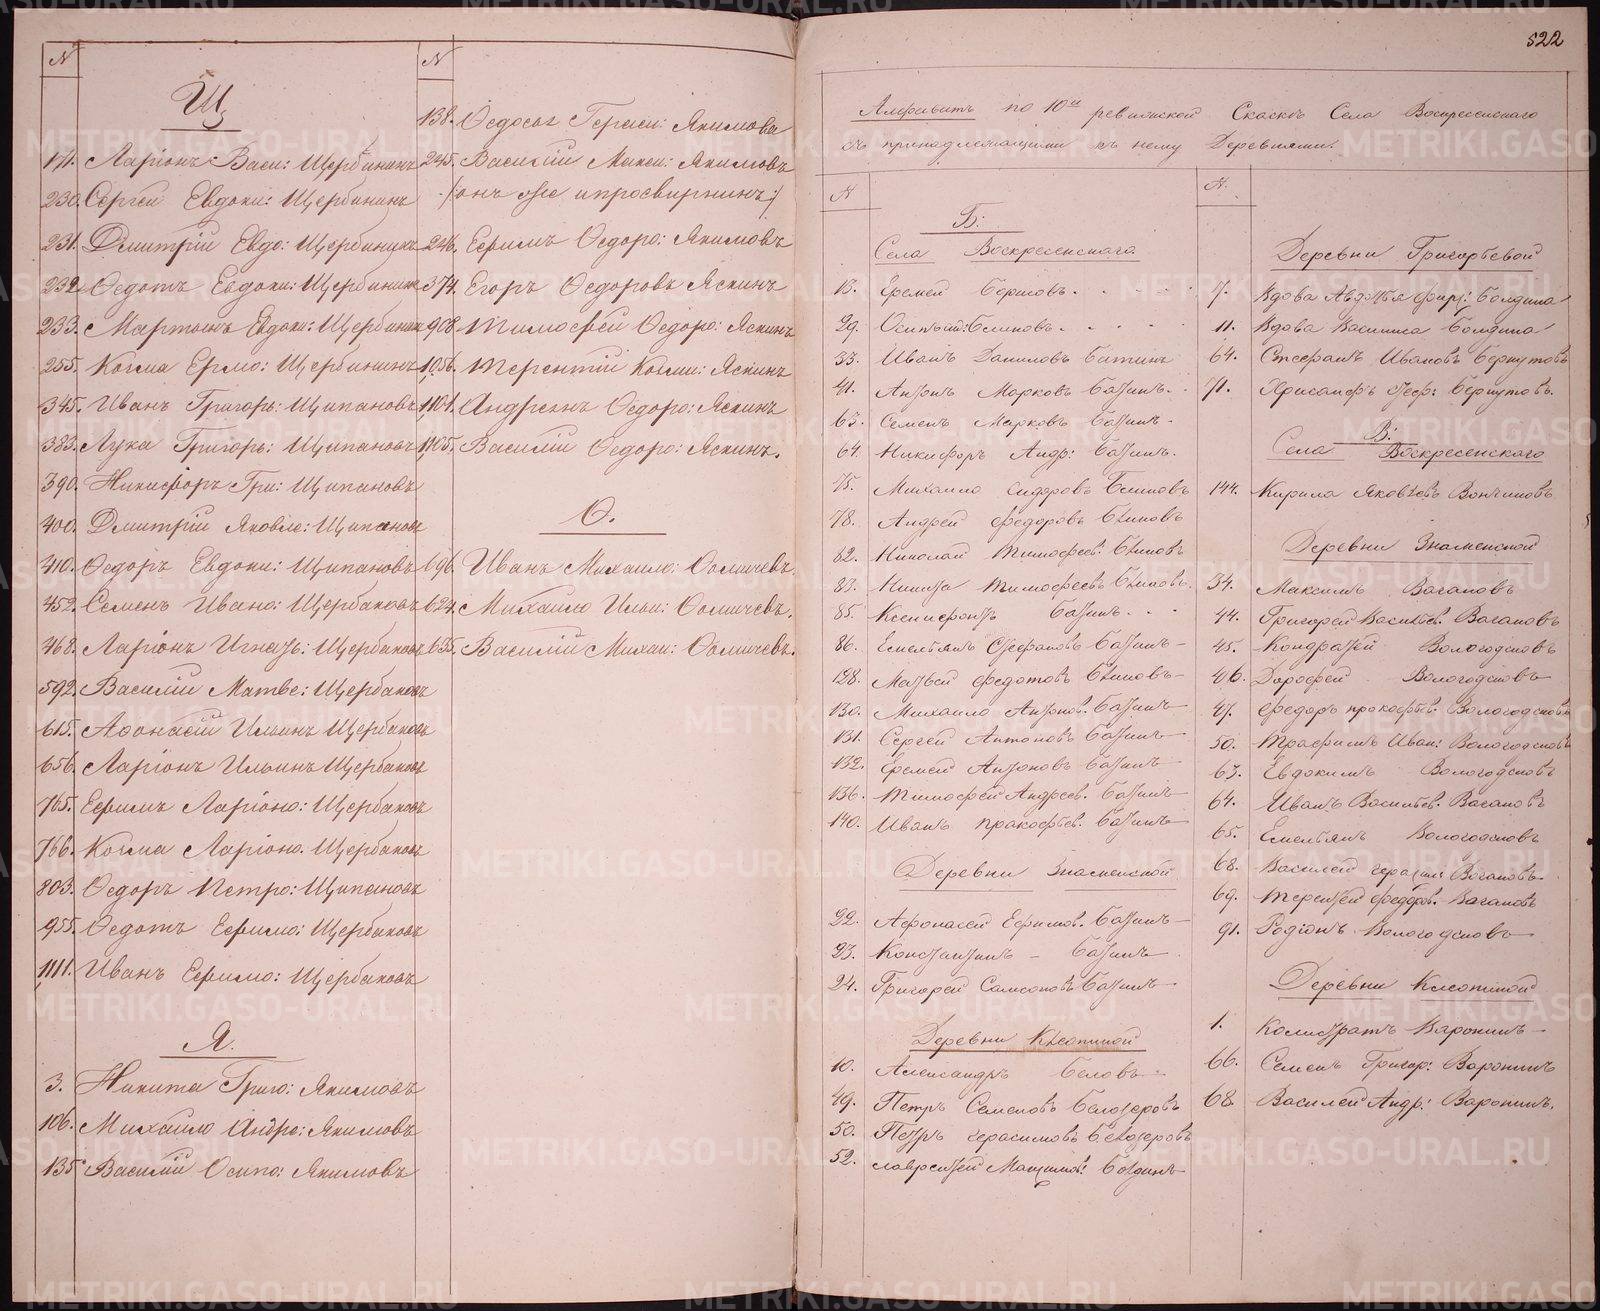 N
Щ
171. Ларіонъ Васи: Щербининъ
230. Сергѣи Евдоки: Щербининъ
231. Дмитріи Евдо: Щербининъ
232. Ѳедотъ Евдоки: Щербининъ
233. Мартынъ Евдоки: Щербининъ
255. Козма Ермо: Щербининъ
345. Иванъ Григорь: Щипановъ
383. Лука Григорь: Щипановъ
390. Никифоръ Гри: Щипановъ
400. Дмитріи Яковле: Щипановъ
410. Ѳедоръ Евдоки: Щипановъ
452. Семенъ Ивано: Щербаковъ
468. Ларіонъ Игнать: Щербаковъ
592. Василіи Матве: Щербаковъ
615. Аѳонасіи Ильинъ Щербаковъ
656. Ларіонъ Ильинъ Щербаковъ
765. Ефимъ Ларіоно: Щербаковъ
766. Козма Ларіоно. Щербаковъ
803. Ѳедоръ Петро: Щипановъ
955. Ѳедотъ Ефимо: Щербаковъ
1111. Иванъ Ефимо: Щербаковъ
Я.
3. Никита Григо: Якимовъ
106. Михаило Андре: Якимовъ
135. Василіи Осипо: Якимовъ
N
138. Ѳедосья Гераси: Якимова
245. Василіи Макси: Якимовъ
/онъ же и просвирнинъ/
246. Ефимъ Ѳедоро: Якимовъ
374. Егоръ Ѳедоровъ Яскинъ
908. Тимоѳеи Ѳедоро: Яскинъ
1056. Терентіи Козми: Яскинъ
1104. Андреянъ Ѳедоро: Яскинъ
1105. Василіи Ѳедоро: Яскинъ.
Ѳ.
696. Иванъ Михаило: Ѳомичевъ.
624. Михаило Ильи: Ѳомичевъ.
635. Василіи Михаи: Ѳомичевъ.
522
Алфавитъ по 10й ревизской Сказкѣ Села Воскресенскаго
съ принадлежащими къ нему Деревнями.
N
Б:
Села Воскресенскаго
13. Еремей
29.
33. Иванъ Даниловъ
41. Антонъ Марковъ Батинъ.
63. Семенъ Марковъ Батинъ.
64. Никифоръ Андр: Батинъ.
75. Михаило Сидоровъ Блиновъ
78. Андрей Федоровъ Блиновъ
82. Николай Тимофеев: Блиновъ
83. Никита Тимофеевъ Блиновъ.
85. Ксенофонтъ Батинъ
86. Емельянъ Стефановъ Батинъ
128. Матвей Федотовъ Блиновъ
130. Михаило Антонов. Батинъ
131. Сергей Антоновъ Батинъ
132. Еремей Антоновъ Батинъ
136. Тимофей Андреев. Батинъ
140. Иванъ Прокофьев. Батинъ
Деревни Знаменской
22. Афонасей Ефимов. Батинъ
23. Константинъ Батинъ
24. Григорей Самсоновъ Батинъ
Деревни
10. Александръ Беловъ
49. Петръ Семеновъ Белозеровъ
50. Петръ Герасимовъ Белозеровъ
52. Лаврентей
N.
Деревни Григорьевой
7. Вдова Авдотья
11. Вдова Василиса
64. Стефанъ Ивановъ
71. Хрисанфъ
В:
Села Воскресенскаго
144. Кирила Яковлевъ
Деревни Знаменской
34. Максимъ Вагановъ
44. Григорей Васильев. Вагановъ
45. Кондратей Вологодсковъ
46. Дорофей Вологодсковъ
47. Федоръ Прокофьев: Вологодсковъ
50. Трофимъ Иван: Вологодсковъ
63. Евдокимъ Вологодсковъ
64. Иванъ Васильев. Вагановъ
65. Емельянъ Вологодсковъ
68. Василей Герасим. Вагановъ
69. Терентей Федоров. Вагановъ
91. Родіонъ Вологодсковъ
Деревни
1. Калистратъ Воронинъ
66. Семенъ Григор: Воронинъ
68. Василей Андр: Воронинъ.
METRIKI.GASO-URAL.RU